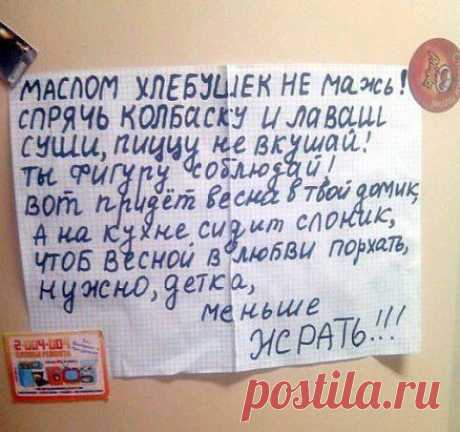 МАСЛОМ ХЛЕБУШЕК НЕ мажь!
СПРЯЧЬ КОЛБАСКУ И ЛАВАШ
СУШИ, ПИЦЦУ НЕ ВКУШАЙ!
ТЫ ФИГУРУ СОБЛЮДАЙ!
ВОТ придёт весна в твой домик,
А на кухне сидит слоник,
чтоб весной в любви порхать,
нужно, детка,
меньше
ЖРАТЬ!!!
2-004-004
postila.ru